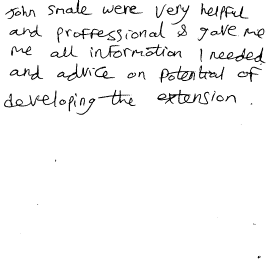 John smale were very helpful
and proffessional & gave me
me all information I needed
and advice on potential of
developing the extension.